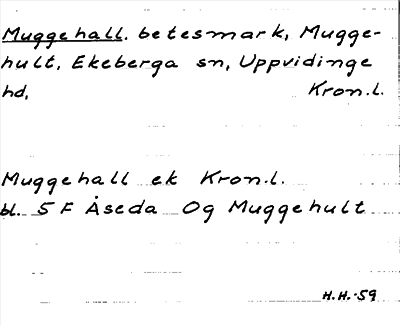 Muggehall. betesmark, Mugge-
hult, Ekeberga sn, Uppvidinge
hd, Kron.l.
Muggehall ek Kron.l.
bl. 5 F Åseda Og Muggehult
H.H.-59